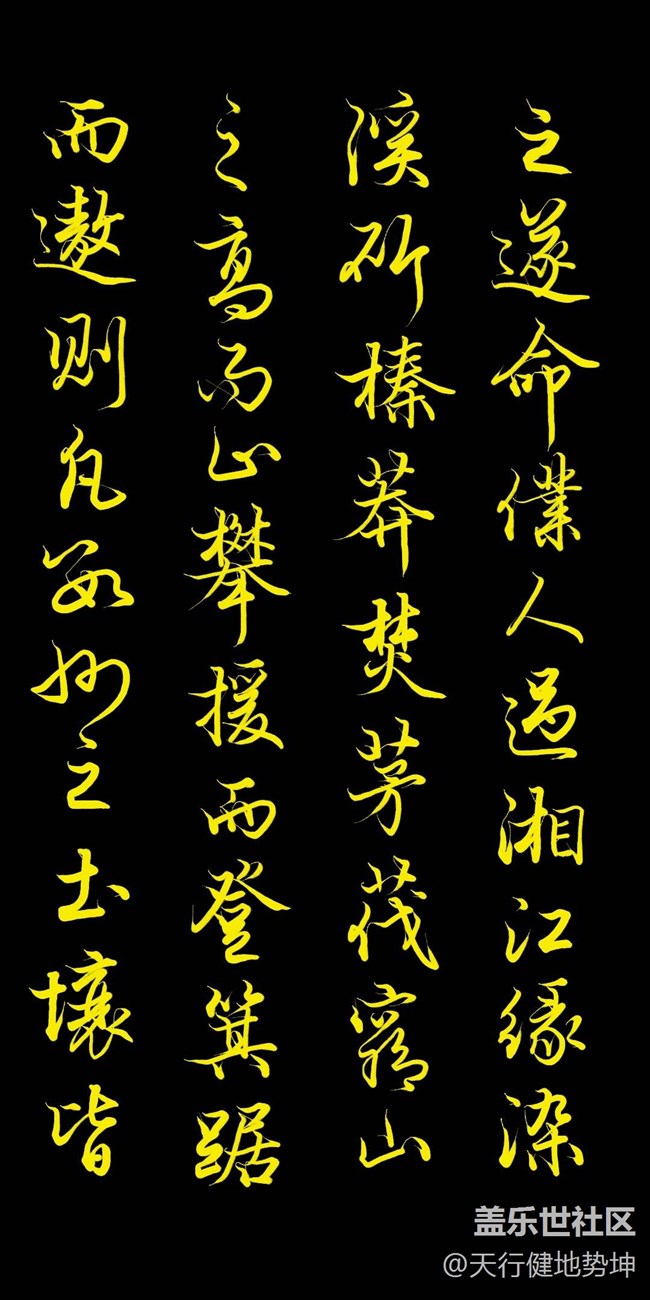 之遂命僕人過湘江緣染
渓斫榛莽焚茅茷窮山
之高而止攀援而登箕踞
而遨則凡數州之土壤皆
盖乐世社区
@天行健地势坤